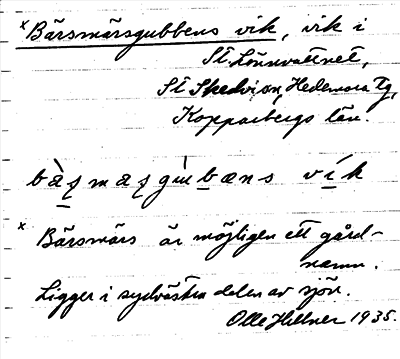 × Bärsmärsgubbens vik, vik i
St. Lönnvattnet,
St Skedvi sn, Hedemora Tg,
Kopparbergs län.
vík
× Bärsmärs är möjligen ett gård-
namn.
Ligger i sydvästra delen av sjön.
Olle Hellner 1935.